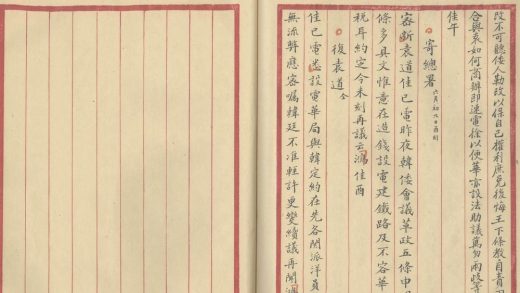 改不可聽倭人勒改以保自己權利庶免後悔王下條教自責
合與袁如何商辦即速電徐以便華官設法助議萬勿兩歧等
佳午
寄總署 六月初九日酉刻
袁道佳巳電昨夜韓倭會議革政五條申
條多具文惟意在造錢設電建鐵路及不容華
稅耳約定今未刻再議云鴻佳酉
復袁道 仝
佳巳電悉設電華局與韓定約在先各開派洋員
無流弊應密囑韓廷不准輕許更變續議再聞鴻